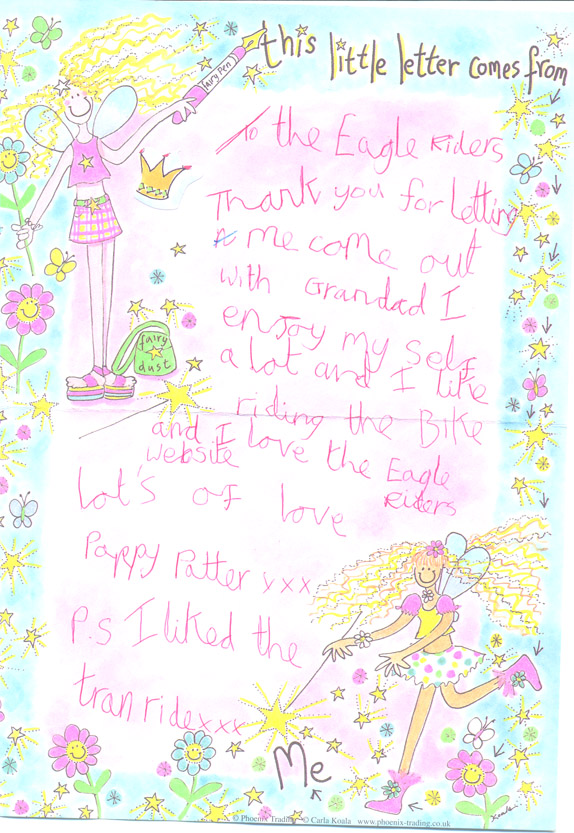 this little letter comes from
fairy Pen
To the Eagle Riders
Thank you for Letting
me come out
with Grandad I
enjoy my self
a lot and I like
riding the Bike
and I love the Eagle
Riders
website
Lot's of love
Pappy Patter xxx
P.S I liked the
tran ride xxx
fairy
dust
Me
© Phoenix Trading © Carla Koala www.phoenix-trading.co.uk